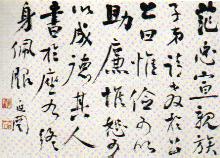 范忠宣親族
子弟請教於公
曰惟儉可以
助廉惟恕可
以成德其人
書於座右終
身佩服